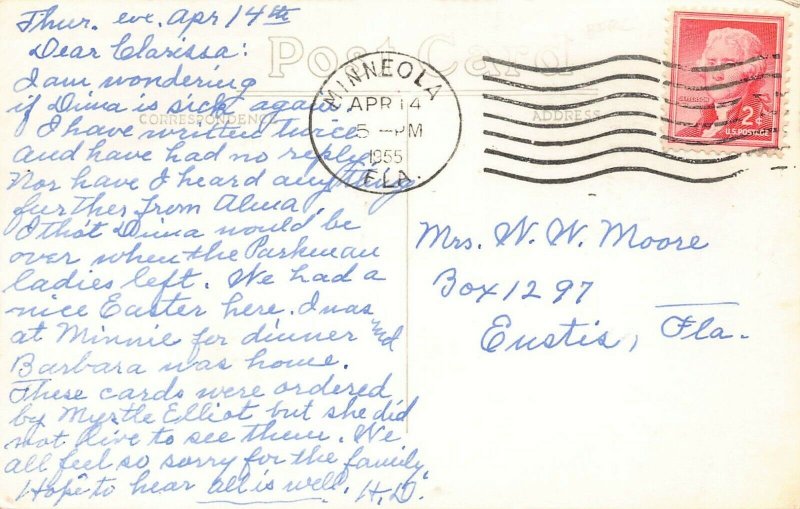 Thur. eve. Apr 14th
Dear Clarissa:
I am wondering
if Dima is sick again
I have written twice
and have had no reply
Nor have I heard anything
further from Alma.
I thot Dima would be
over when the Parkman
ladies left. We had a
nice Easter here. I was
at Minnie for dinner and
Barbara was home.
These cards were ordered
by Myrtle Elliot but she did
not live to see them. We
all feel so sorry for the family
Hope to hear all is well. H.D.
Post Card
CORRESPONDENCE
ADDRESS
MINNEOLA
APR 14
5 - PM
1955
FLA.
2¢
U.S. POSTAGE
Mrs. W. W. Moore
Box 1297
Eustis, Fla.